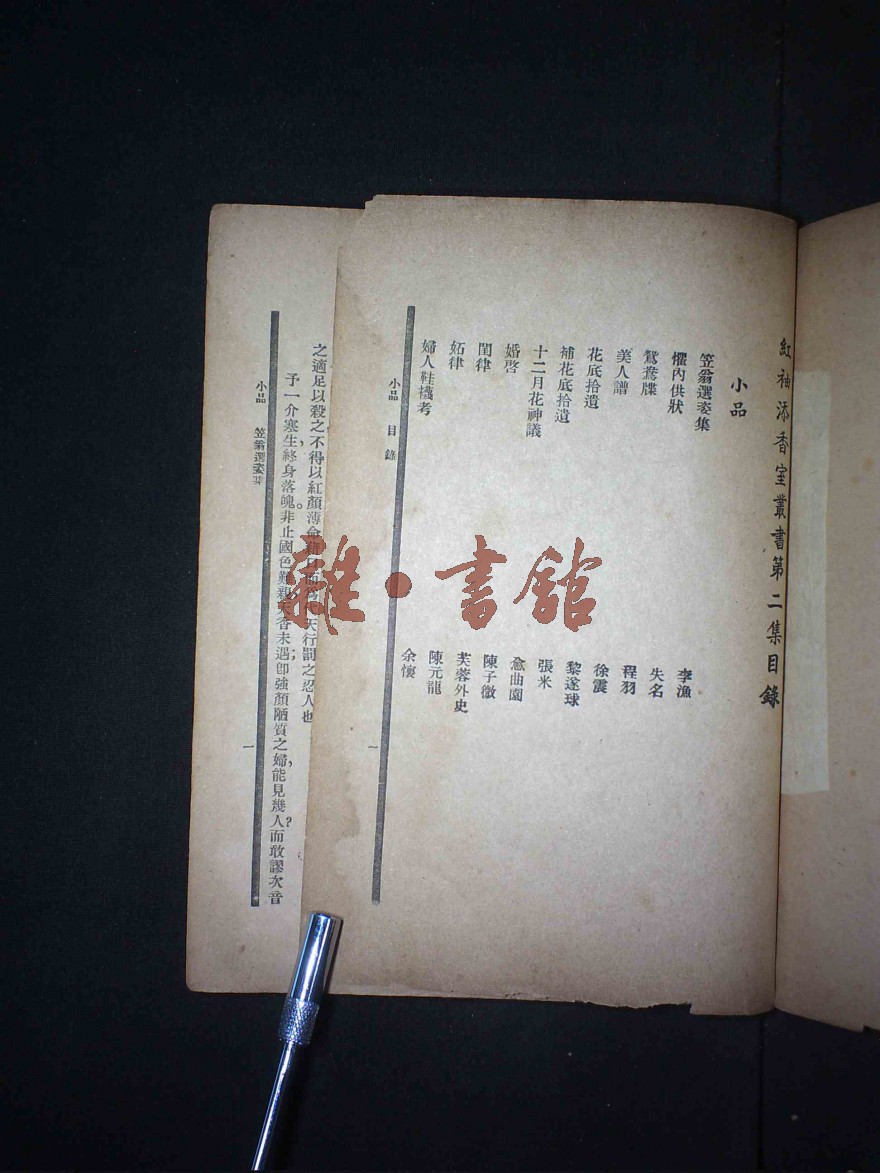 紅袖添香室叢書第二集目錄
小品
笠翁選姿集 李漁
懼內供狀 失名
鴛鴦牒 程羽
美人譜 徐震
花底拾遺 黎遂球
補花底拾遺 張米
十二月花神議 俞曲園
婚啓 陳子徵
閨律 芙蓉外史
妬律 陳元龍
婦人鞋襪考 余懷
小品 目錄 一
之適足以殺之不得以紅顏薄命 天行罰之忍人也
予一介寒生,終身落魄。非止國色難親,天香未遇;卽強顏陋質之婦,能見幾人?而敢謬次音
小品 笠翁選姿集 一
雜·書舘